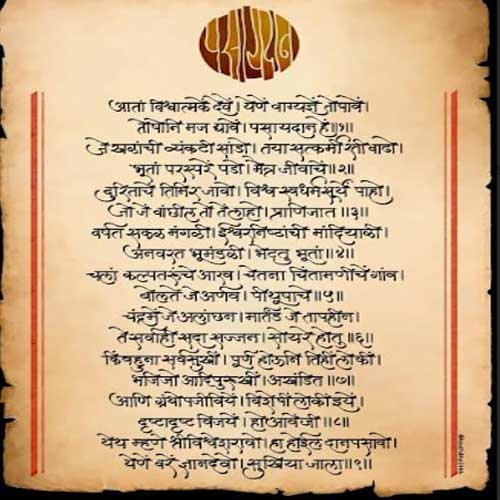 पसायदान
आतां विश्वात्मकें देवें। येणें वाग्यज्ञें तोषावें।
तोषोनि मज द्यावें। पसायदान हें॥१॥
जे खळांची व्यंकटी सांडो। तया सत्कर्मी रती वाढो।
भूतां परस्परें पडो। मैत्र जीवांचें॥२॥
दुरितांचें तिमिर जावो। विश्व स्वधर्मसूर्यें पाहो।
जो जें वांछील तो तें लाहो। प्राणिजात॥३॥
वर्षत सकळ मंगळीं। ईश्वरनिष्ठांची मांदियाळी।
अनवरत भूमंडळीं। भेटतु भूतां॥४॥
चलां कल्पतरूंचे आरव। चेतना चिंतामणींचें गांव।
बोलते जे अर्णव। पीयूषाचे॥५॥
चंद्रमे जे अलांछन। मार्तंड जे तापहीन।
ते सर्वांही सदा सज्जन। सोयरे होतु॥६॥
किंबहुना सर्वसुखीं। पूर्ण होऊनि तिहीं लोकीं।
भजिजो आदिपुरुखीं। अखंडित॥७॥
आणि ग्रंथोपजीविये। विशेषीं लोकीं इयें।
दृष्टादृष्ट विजयें। होआवें जी॥८॥
येथ म्हणे श्रीविश्वेशरावो। हा होईल दानपसावो।
येणें वरें ज्ञानदेवो। सुखिया जाला॥९॥